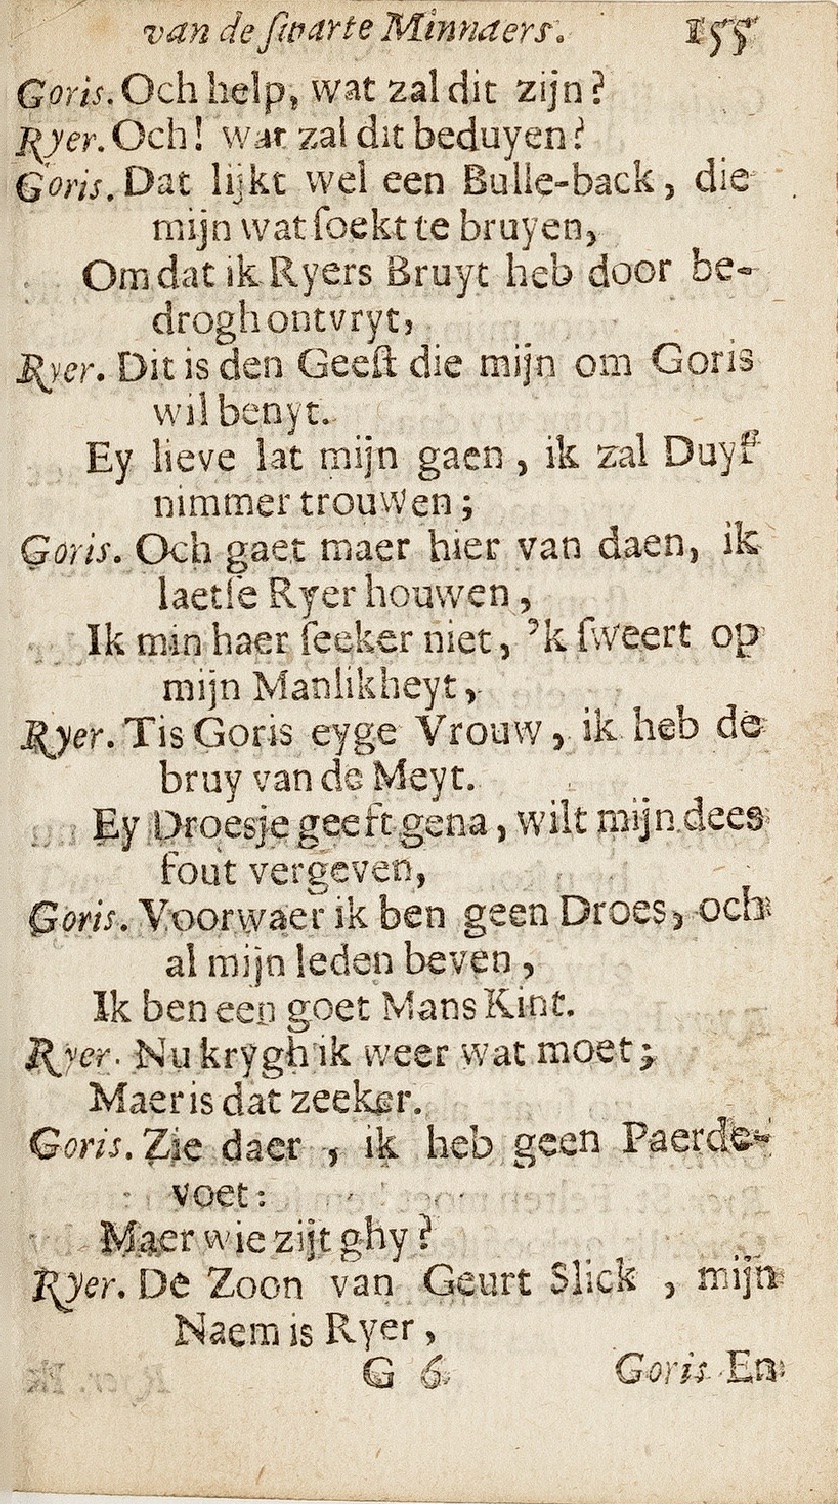 van de ſwarte Minnaers. 155
Goris. Och help, wat zal dit zijn?
Ryer. Och! wat zal dit beduyen?
Goris. Dat lijkt wel een Bulle-back, die
mijn wat ſoekt te bruyen,
Om dat ik Ryers Bruyt heb door be-
drogh ontvryt,
Ryer. Dit is den Geeſt die mijn om Goris
wil benyt.
Ey lieve lat mijn gaen, ik zal Duyf
nimmer trouwen;
Goris. Och gaet maer hier van daen, ik
laetſe Ryer houwen,
Ik min haer ſeeker niet, 'k ſweert op
mijn Manlikheyt,
Ryer. Tis Goris eyge Vrouw, ik heb de
bruy van de Meyt.
Ey Droesje geeft gena, wilt mijn dees
fout vergeven,
Goris. Voorwaer ik ben geen Droes, och
al mijn leden beven,
Ik ben een goet Mans Kint.
Ryer. Nu krygh ik weer wat moet;
Maer is dat zeeker.
Goris. Zie daer, ik heb geen Paerde-
voet:
Maer wie zijt ghy?
Ryer. De Zoon van Geurt Slick, mijn
Naem is Ryer,
G 6 Goris. En